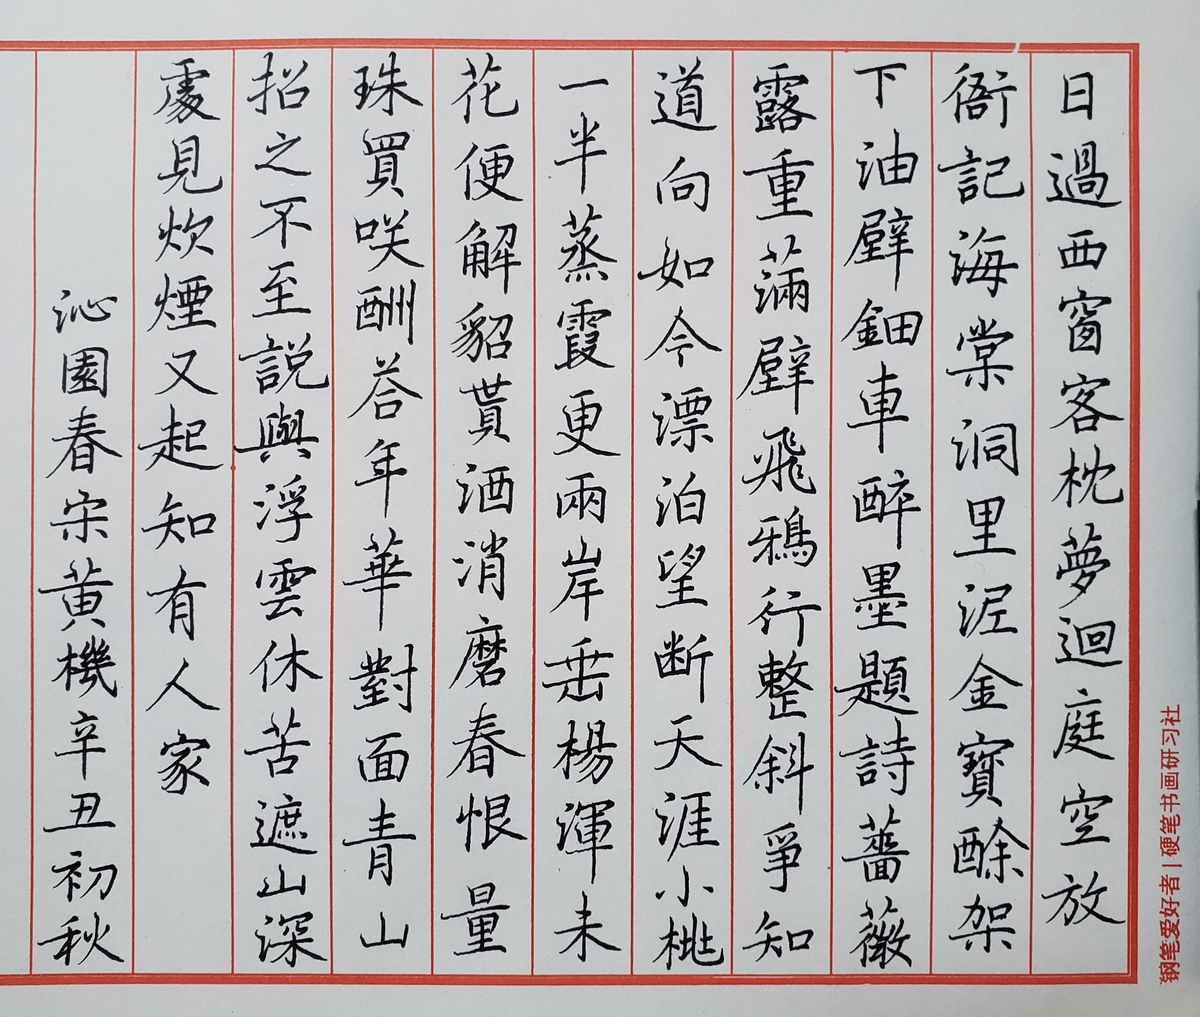 日過西窗客枕夢迴庭空放
衙記海棠洞里泥金寶酴架
下油壁鈿車醉墨題詩薔薇
露重滿壁飛鴉行整斜爭知
道向如今漂泊望斷天涯小桃
一半蒸霞更兩岸垂楊渾未
花便解貂貰酒消磨春恨量
珠買咲酬荅年華對面青山
招之不至説與浮雲休苦遮山深
處見炊煙又起知有人家
沁園春宋黃機辛丑初秋
钢笔爱好者|硬笔书画研习社